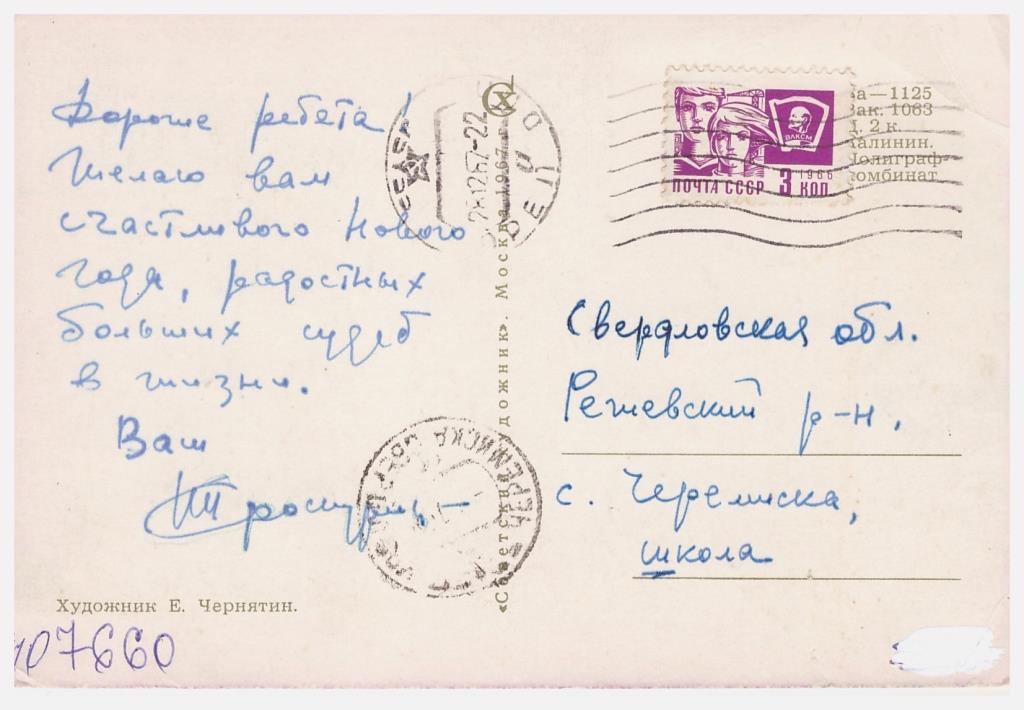 Дорогие ребята!
Желаю вам
счастливого Нового
года, радостных
больших судеб
в жизни.
Ваш
Художник Е. Чернятин.
107660
«Советский художник». Москва 1967
ОДЕССА
28.12.67-22
ЧЕРЕМИССКА
ВЛКСМ
1966
ПОЧТА СССР 3 КОП
За—1125
Зак. 1063
Ц. 2 к.
Калинин.
Полиграф-
комбинат
Свердловская обл.
Режевский р-н,
с. Черемиска,
школа